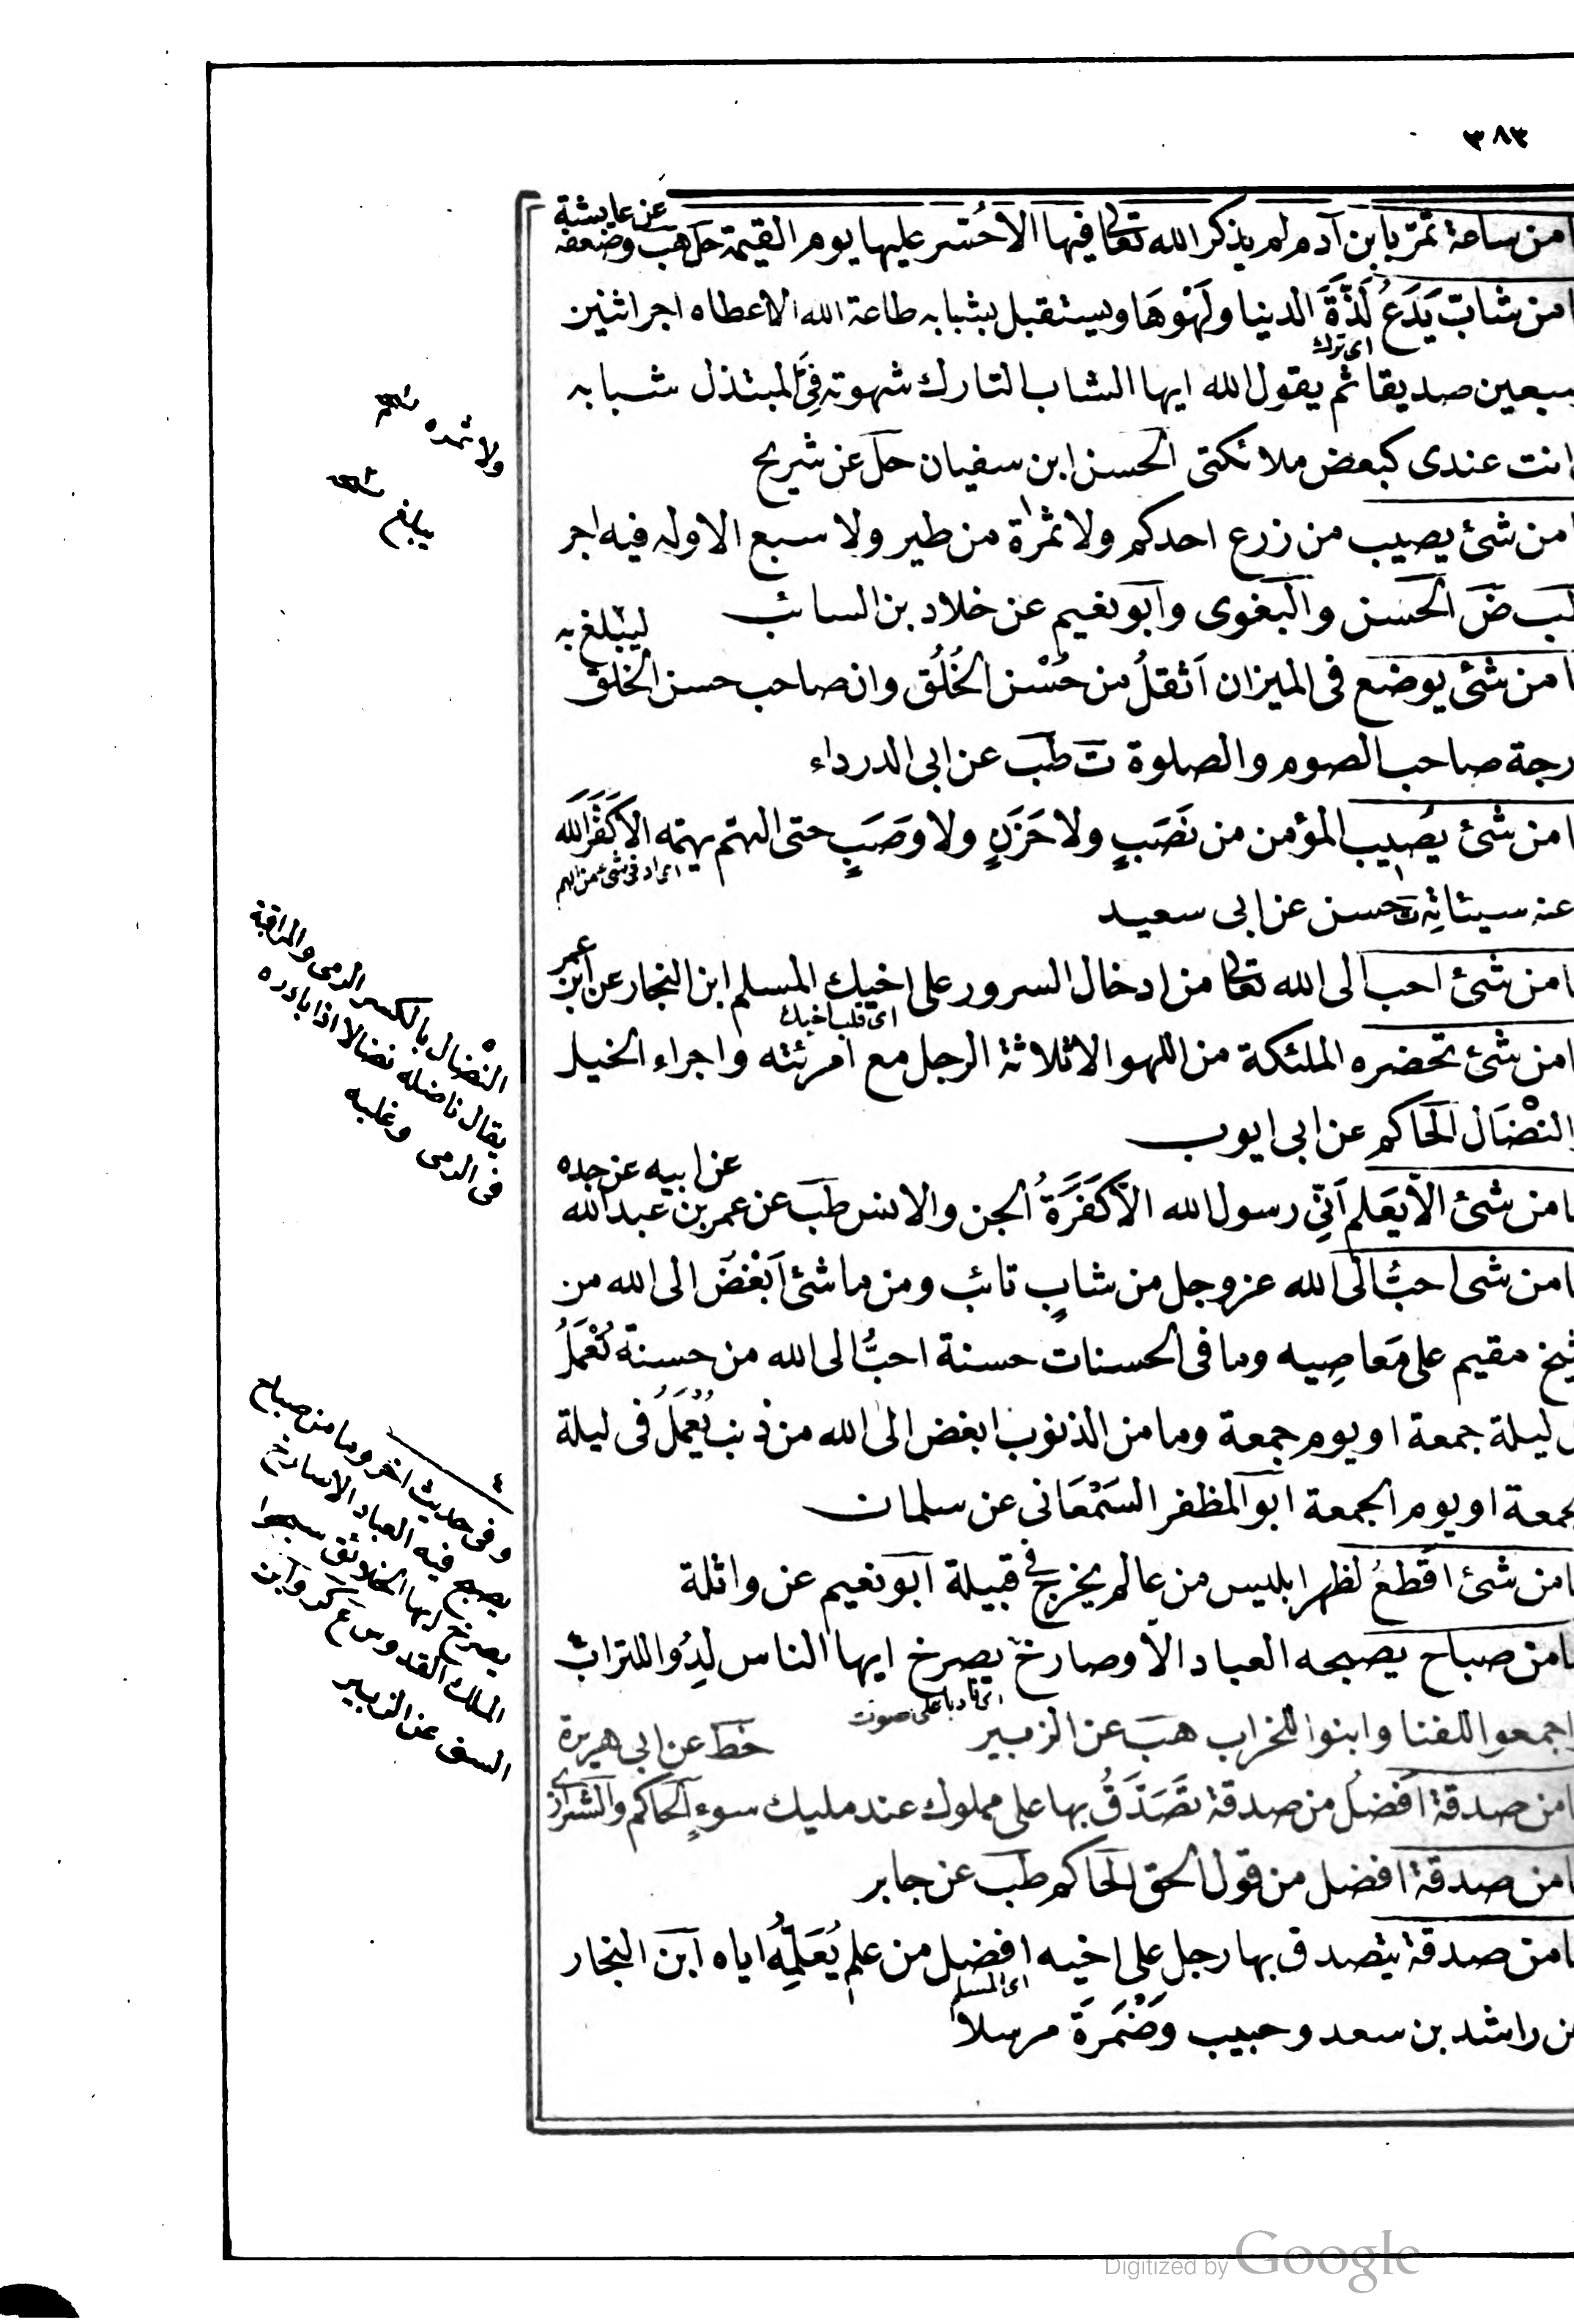 ٣٨٣
امن ساعة تمرّ بابن آدم لم يذكر الله تعالى فيها الا حُسّر عليها يوم القيمة حل هب وضعفه عن عايشة
امن شابّ يَدَعُ لَذَّةَ الدنيا ولَهْوَهَا ويستقبل بشبابه طاعة الله الا اعطاه اجر اثنين
اى ترك
سبعين صديقا ثم يقول الله ايها الشاب التارك شهوته فِىَّ المبتذل شبابه
انت عندى كبعض ملائكتى الحسن ابن سفيان حل عن شريح
امن شئ يصيب من زرع احدكم ولا ثمرة من طير ولا سبع الا وله فيه اجر
طب ض الحسن والبغوى وابو نعيم عن خلاد بن السائب
امن شئ يوضع فى الميزان اثقلُ من حُسْن الخُلُق وان صاحب حسن الخلق ليبلغ به
رجة صاحب الصوم والصلوة ت طب عن ابى الدرداء
امن شئ يصيب المؤمن من نَصَبٍ ولا حَزَنٍ ولا وَصَبٍ حتى الهتم يهتمه الا كَفَّرَ الله
عنه سيئاتِه ت حسن عن ابى سعيد
امن شئ احب الى الله تعالى من ادخال السرور على اخيك المسلم ابن النجار عن ابن عمر
اى قلب اخيك
امن شئ تحضره الملئكة من اللهو الا ثلاثة الرجل مع امرئته واجراء الخيل
والنضَال الحاكم عن ابى ايوب
امن شئ الا يَعلم اَنّى رسول الله الا كَفَرَةُ الجن والانس طب عن عمر بن عبد الله عن ابيه عن جده
امن شى احبُّ الى الله عز وجل من شابٍ تائب ومن ما شئ اَبْغَضَ الى الله من
شيخ مقيم على مَعاصِيه وما فى الحسنات حسنة احبُّ الى الله من حسنة تُعْمَلُ
ليلة جمعة او يوم جمعة وما من الذنوب ابغض الى الله من ذنب يُعْمَلُ فى ليلة
جمعة او يوم الجمعة ابو المظفر السَمْعَانى عن سلمان
امن شئ اقطعُ لظهر ابليس من عالم يخرج فى قبيلة ابو نعيم عن واثلة
امن صباح يصبحه العباد الا وصارخ يصرخ ايها الناس لِدُوا للتراب
اجمعوا للفنا وابنوا للخراب هب عن الزبير
امن صدقة افضلُ من صدقة تَصَدَّقُ بها على مملوك عند مليك سوءٍ الحاكم والشيرازى خط عن ابى هريرة
امن صدقة افضل من قول الحق الحاكم طب عن جابر
امن صدقة يتصدق بها رجل على اخيه افضل من علم يُعَلِّمُه اياه ابن النجار
اى المسلم
عن راشد بن سعد وحبيب وَضَمْرَةَ مرسلا
ولا ثمره
يبلغ
النضال بالكسر الرمى والمراقبة
يقال ناضله نضالا اذا بادره
فى الرمى وغلبه
وفى حديث اخر وما من صباح
يصبح فيه العباد الا صارخ
يصرخ ايها الخلائق سبحوا
الملك القدوس ع كر وابن
السنى عن الزبير
Digitized by Google